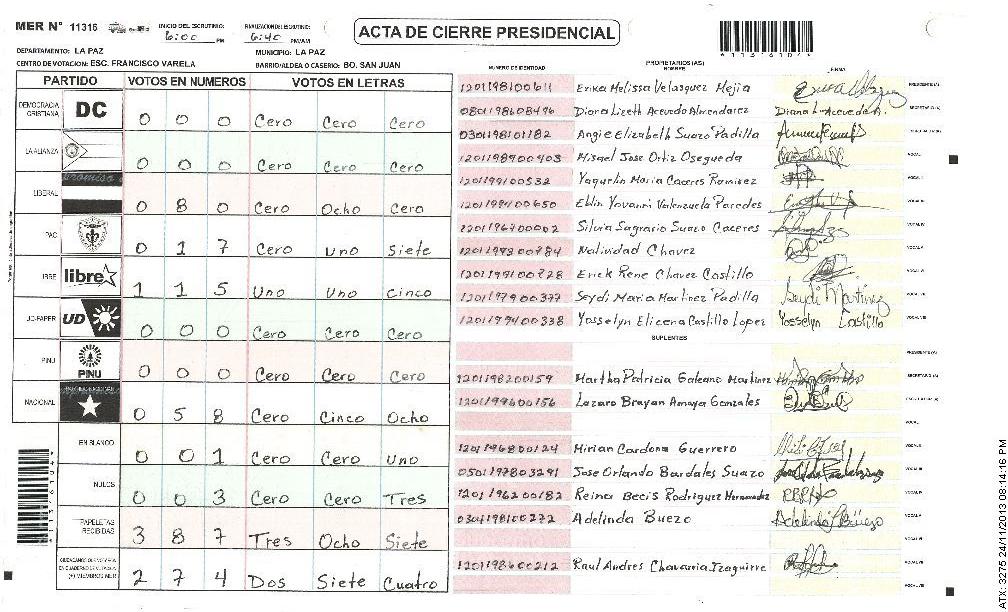 MER N° 11316
INICIO DEL ESCRUTINIO: 6:00 PM
FINALIZACION DEL ESCRUTINIO: 6:40 PM/AM
ACTA DE CIERRE PRESIDENCIAL
11316104
DEPARTAMENTO: LA PAZ
MUNICIPIO: LA PAZ
CENTRO DE VOTACION: ESC. FRANCISCO VARELA
BARRIO/ALDEA O CASERIO: BO. SAN JUAN
PARTIDO VOTOS EN NUMEROS VOTOS EN LETRAS
DEMOCRACIA CRISTIANA DC 0 0 0 Cero Cero Cero
LA ALIANZA 0 0 0 Cero Cero Cero
LIBERAL 0 8 0 Cero Ocho Cero
PAC 0 1 7 Cero Uno Siete
libre 1 1 5 Uno Uno Cinco
UD-FAPER UD 0 0 0 Cero Cero Cero
PINU PINU 0 0 0 Cero Cero Cero
NACIONAL 0 5 8 Cero Cinco Ocho
EN BLANCO 0 0 1 Cero Cero Uno
NULOS 0 0 3 Cero Cero Tres
PAPELETAS RECIBIDAS 3 8 7 Tres Ocho Siete
(+) MIEMBROS MER 2 7 4 Dos Siete Cuatro
NUMERO DE IDENTIDAD PROPIETARIOS (AS) NOMBRE FIRMA
1201198100611 Erika Melissa Velasquez Mejia PRESIDENTE (A)
0801198608496 Diana Lizeth Acevedo Almendarez Diana L. Acevedo A. SECRETARIO (A)
0301198101182 Angie Elizabeth Suazo Padilla
1201198900403 Misael Jose Ortiz Osegueda VOCAL I
1201199100532 Yaquelin Maria Caceres Ramirez VOCAL II
1201199400650 Eblin Yovanni Valenzuela Paredes VOCAL III
1201196700002 Silvia Sagrario Suazo Caceres VOCAL IV
1201199300784 Natividad Chavez VOCAL V
1201199100728 Erick Rene Chavez Castillo VOCAL VI
1201197900377 Seydi Maria Martinez Padilla Seydi Martínez VOCAL VII
1201199400338 Yosselyn Elicena Castillo Lopez Yosselyn Castillo VOCAL VIII
SUPLENTES
PRESIDENTE (A)
1201198200159 Martha Patricia Galeano Martinez SECRETARIO (A)
1201199600156 Lazaro Brayan Amaya Gonzales
VOCAL I
1201196800124 Mirian Cardona Guerrero VOCAL II
0501197803291 Jose Orlando Bardales Suazo VOCAL III
1201196200182 Reina Becis Rodriguez Hernandez VOCAL IV
0301198100272 Adelinda Buezo VOCAL V
VOCAL VI
1201198600212 Raul Andres Chavarria Izaguirre VOCAL VII
VOCAL VIII
ATX: 3275 24/11/2013 08:14:16 PM